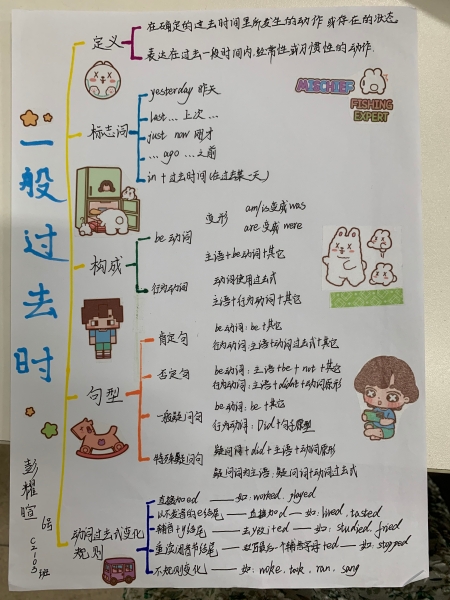 一般过去时
定义
在确定的过去时间里所发生的动作或存在的状态
表达在过去一段时间内,经常性或习惯性的动作.
标志词
yesterday 昨天
last … 上次 …
just now 刚才
… ago … 之前
in + 过去时间(在过去某一天)
MISCHIEF
FISHING
EXPERT
构成
be 动词
变形
am/is变成 was
are 变成 were
主语+be动词+其它
行为动词
动词使用过去式
主语+行为动词+其它
句型
肯定句
be动词: be+其它
行为动词:主语+动词过去式+其它
否定句
be动词: 主语+be + not +其它
行为动词:主语+didnt+动词原形
一般疑问句
be动词: be+其它
行为动词: Did+句子原型
特殊疑问句
疑问词+did+主语+动词原形
疑问词为主语:疑问词+动词过去式
动词过去式变化
规则
直接加ed —— 如: worked. played
以不发音的e结尾 —— 直接加d — 如: lived. tasted
辅音+y结尾 — 去y改i+ed — 如: studied. fried
重读闭音节结尾 — 双写最后一个辅音字母+ed — 如: stopped
不规则变化 —— 如: woke. took. ran. sang
彭耀暄
6号
C2103班